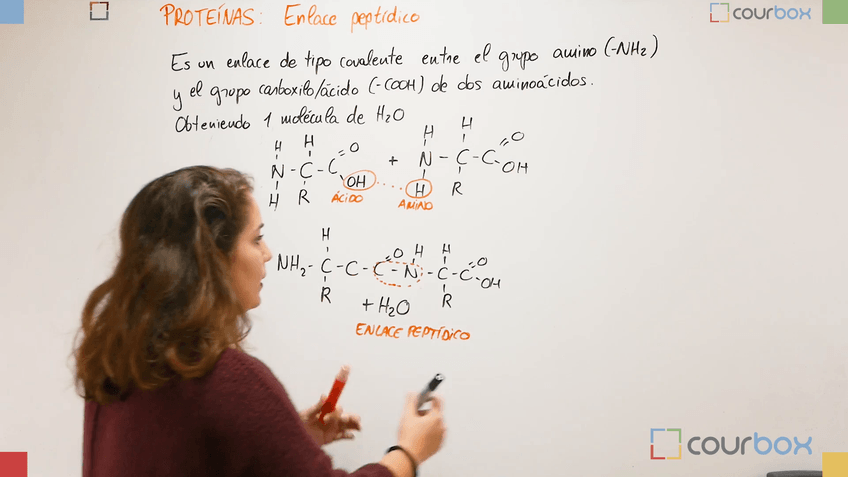 PROTEÍNAS: Enlace peptídico
courbox
Es un enlace de tipo covalente entre el grupo amino (-NH2)
y el grupo carboxilo/ácido (-COOH) de dos aminoácidos.
Obteniendo 1 molécula de H2O
H H O H H O
N - C - C + N - C - C
H R OH H R OH
ÁCIDO AMINO
H O H H O
NH2 - C - C - C - N - C - C
R R OH
+ H2O
ENLACE PEPTÍDICO
courbox